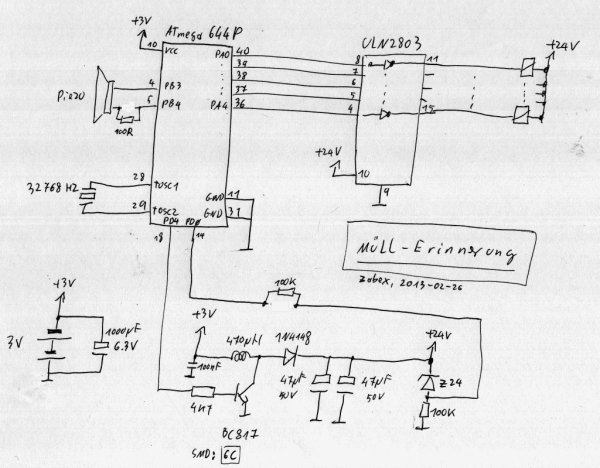 +3V
ATmega 644P
ULN2803
+24V
10
VCC
PA0
40
39
38
37
36
PA4
8
7
6
5
4
11
15
Piezo
4
PB3
5
PB4
100R
+24V
10
9
32768 Hz
28
TOSC1
29
TOSC2
GND
11
GND
31
PD4
PD0
18
14
MÜLL-Erinnerung
zabex, 2013-02-26
100K
+3V
3V
1000µF
6.3V
+3V
470µH
1N4148
+24V
100nF
47µF
50V
47µF
50V
Z24
100K
4K7
BC817
SMD: 6C